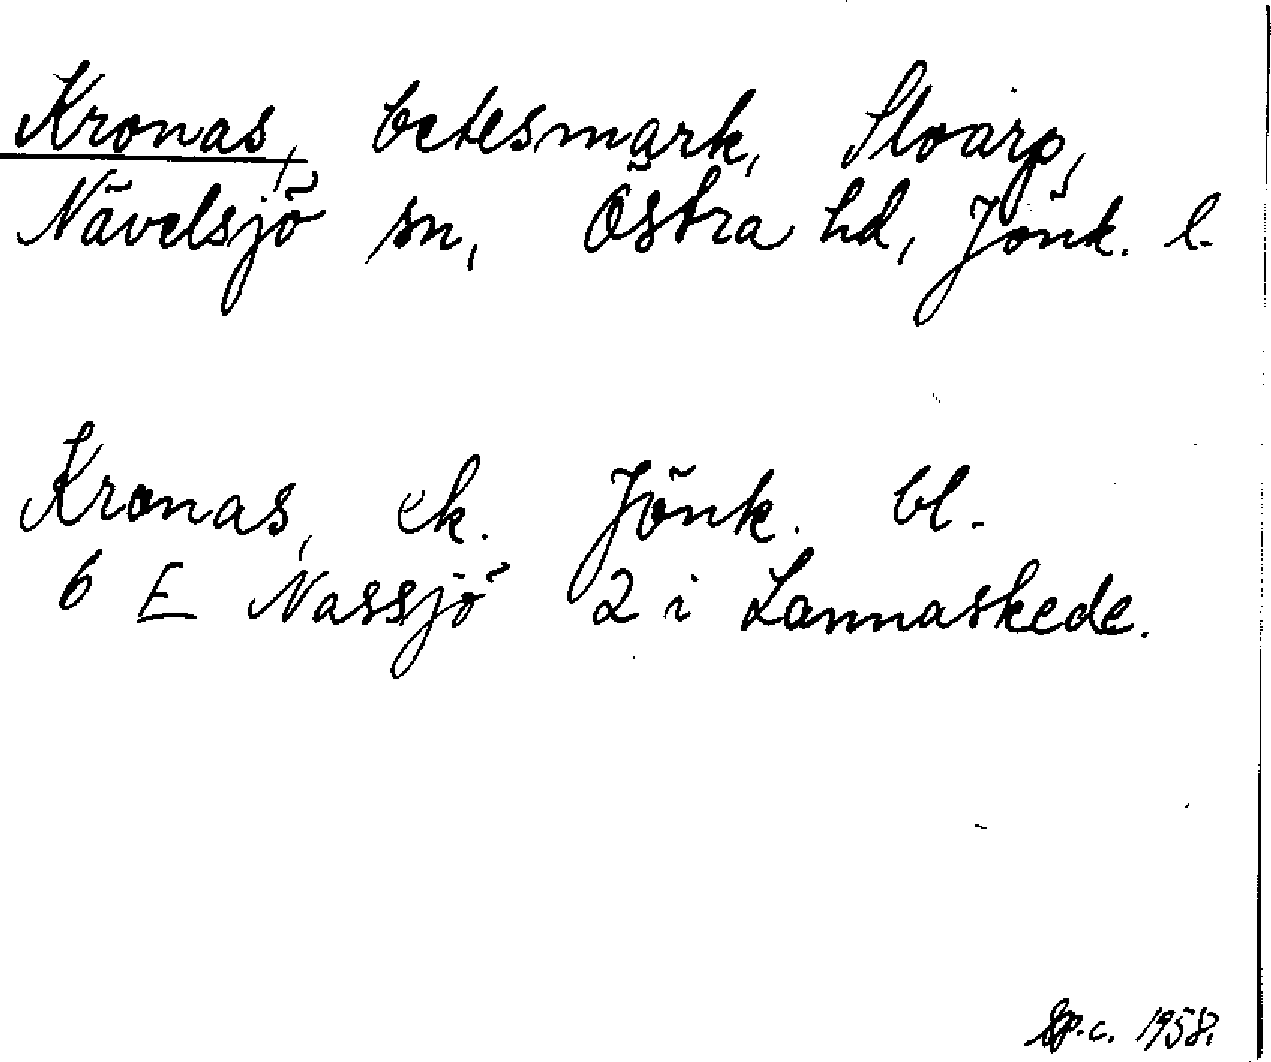 Kronas, betesmark, Sloarp,
Nävelsjö sn, Östra hd, Jönk. l.
Kronas, ek. Jönk. bl.
6 E Nassjö 2 i Lannaskede.
1958.